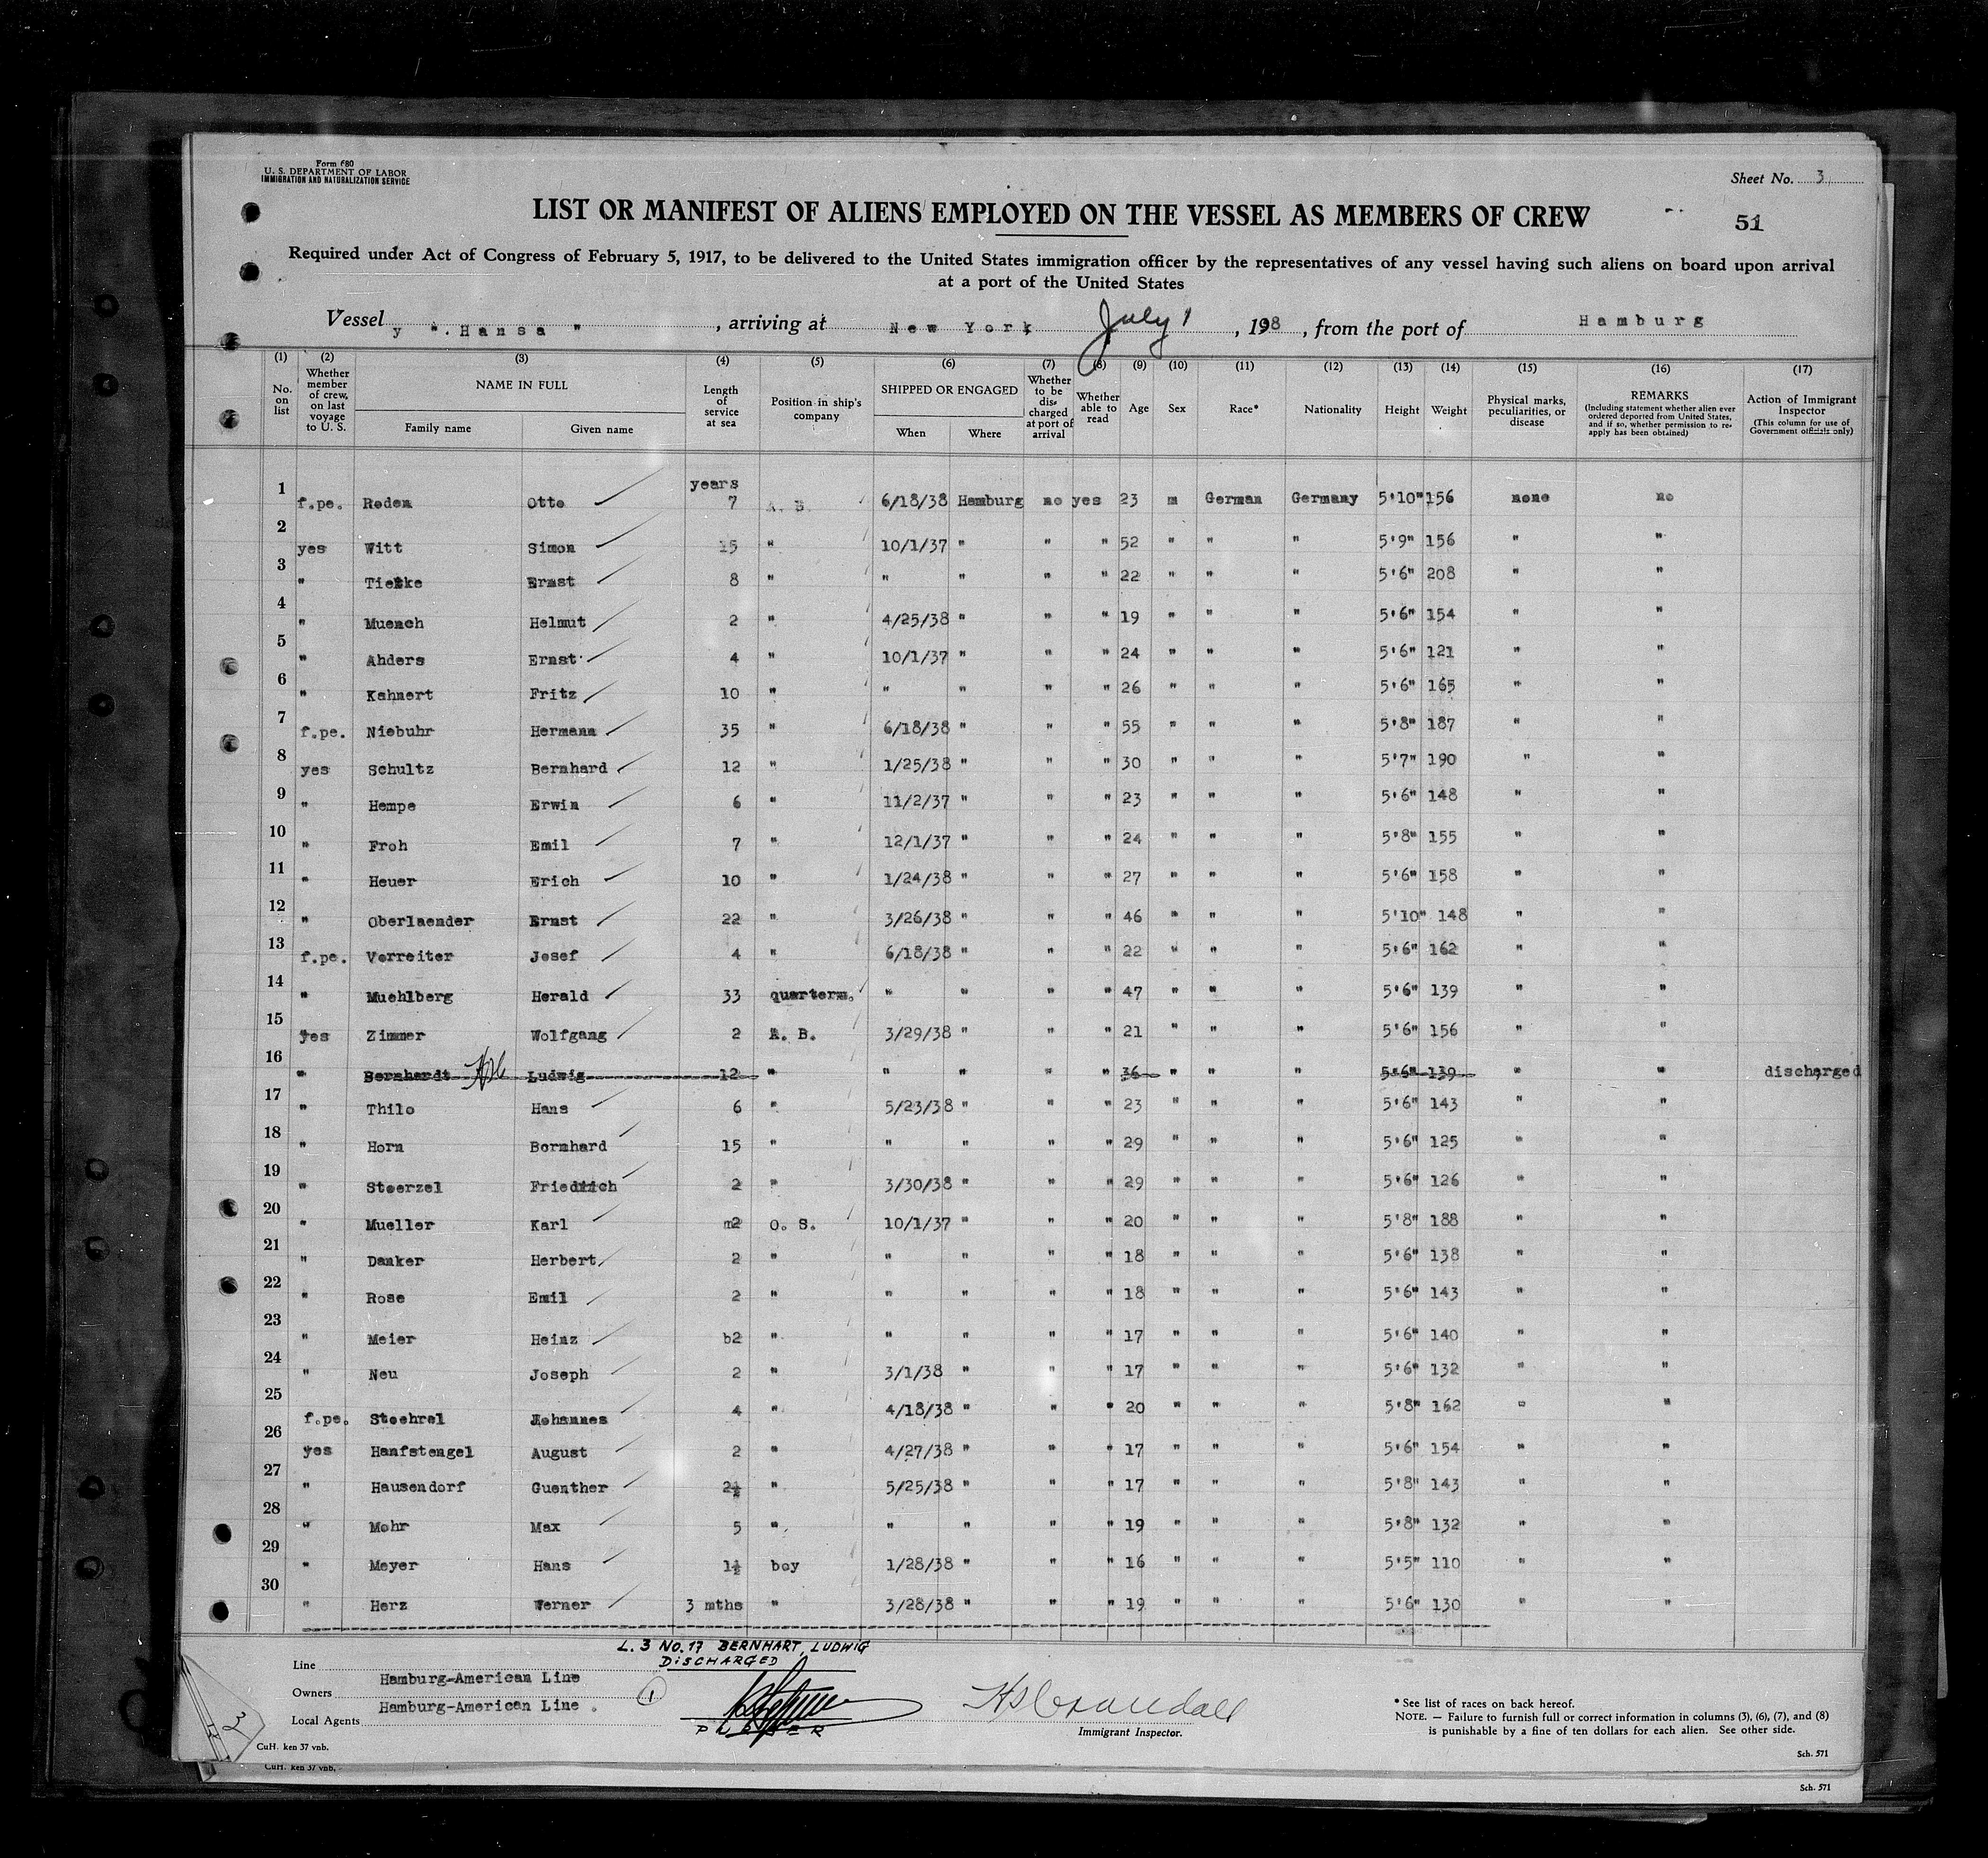 Form 680
U. S. DEPARTMENT OF LABOR
IMMIGRATION AND NATURALIZATION SERVICE
Sheet No. 3
LIST OR MANIFEST OF ALIENS EMPLOYED ON THE VESSEL AS MEMBERS OF CREW
51
Required under Act of Congress of February 5, 1917, to be delivered to the United States immigration officer by the representatives of any vessel having such aliens on board upon arrival
at a port of the United States
Vessel y ". Hansa ", arriving at New York July 1, 198, from the port of Hamburg
(1) No. on list (2) Whether member of crew, on last voyage to U. S. (3) NAME IN FULL Family name Given name (4) Length of service at sea (5) Position in ship's company (6) SHIPPED OR ENGAGED When Where (7) Whether to be discharged at port of arrival (8) Whether able to read (9) Age (10) Sex (11) Race* (12) Nationality (13) Height (14) Weight (15) Physical marks, peculiarities, or disease (16) REMARKS (Including statement whether alien ever ordered deported from United States, and if so, whether permission to re-apply has been obtained) (17) Action of Immigrant Inspector (This column for use of Government officials only)
years
1 f.pe. Reden Otto 7 A. B. 6/18/38 Hamburg no yes 23 m German Germany 5'10" 156 none no
2 yes Witt Simon 15 " 10/1/37 " " " 52 " " " 5'9" 156 " "
3 " Tietke Ernst 8 " " " " " 22 " " " 5'6" 208 " "
4 " Muench Helmut 2 " 4/25/38 " " " 19 " " " 5'6" 154 " "
5 " Ahders Ernst 4 " 10/1/37 " " " 24 " " " 5'6" 121 " "
6 " Kahnert Fritz 10 " " " " " 26 " " " 5'6" 165 " "
7 f.pe. Niebuhr Hermann 35 " 6/18/38 " " " 55 " " " 5'8" 187 " "
8 yes Schultz Bernhard 12 " 1/25/38 " " " 30 " " " 5'7" 190 " "
9 " Hempe Erwin 6 " 11/2/37 " " " 23 " " " 5'6" 148 " "
10 " Froh Emil 7 " 12/1/37 " " " 24 " " " 5'8" 155 " "
11 " Heuer Erich 10 " 1/24/38 " " " 27 " " " 5'6" 158 " "
12 " Oberlaender Ernst 22 " 3/26/38 " " " 46 " " " 5'10" 148 " "
13 f.pe. Verreiter Josef 4 " 6/18/38 " " " 22 " " " 5'6" 162 " "
14 " Muehlberg Herald 33 quarterm. " " " " 47 " " " 5'6" 139 " "
15 yes Zimmer Wolfgang 2 A. B. 3/29/38 " " " 21 " " " 5'6" 156 " "
16 " Bernhardt Ludwig 12 " " " " " 36 " " " 5'6" 139 " " discharged
17 " Thilo Hans 6 " 5/23/38 " " " 23 " " " 5'6" 143 " "
18 " Horn Bernhard 15 " " " " " 29 " " " 5'6" 125 " "
19 " Steerzel Friedrich 2 " 3/30/38 " " " 29 " " " 5'6" 126 " "
20 " Mueller Karl m2 O. S. 10/1/37 " " " 20 " " " 5'8" 188 " "
21 " Danker Herbert 2 " " " " " 18 " " " 5'6" 138 " "
22 " Rose Emil 2 " " " " " 18 " " " 5'6" 143 " "
23 " Meier Heinz b2 " " " " " 17 " " " 5'6" 140 " "
24 " Neu Joseph 2 " 3/1/38 " " " 17 " " " 5'6" 132 " "
25 f.pe. Stoehrel Johannes 4 " 4/18/38 " " " 20 " " " 5'8" 162 " "
26 yes Hanfstengel August 2 " 4/27/38 " " " 17 " " " 5'6" 154 " "
27 " Hausendorf Guenther 2½ " 5/25/38 " " " 17 " " " 5'8" 143 " "
28 " Mohr Max 5 " " " " " 19 " " " 5'8" 132 " "
29 " Meyer Hans 1½ boy 1/28/38 " " " 16 " " " 5'5" 110 " "
30 " Herz Werner 3 mths " 3/28/38 " " " 19 " " " 5'6" 130 " "
L. 3 No. 17 BERNHART, LUDWIG
DISCHARGED
Line Hamburg-American Line
Owners Hamburg-American Line .
Local Agents
1
HsCrandall
Immigrant Inspector.
* See list of races on back hereof.
NOTE. — Failure to furnish full or correct information in columns (3), (6), (7), and (8)
is punishable by a fine of ten dollars for each alien. See other side.
3
CuH. ken 37 vnb.
Sch. 571
CuH. ken 37 vnb.
Sch. 571